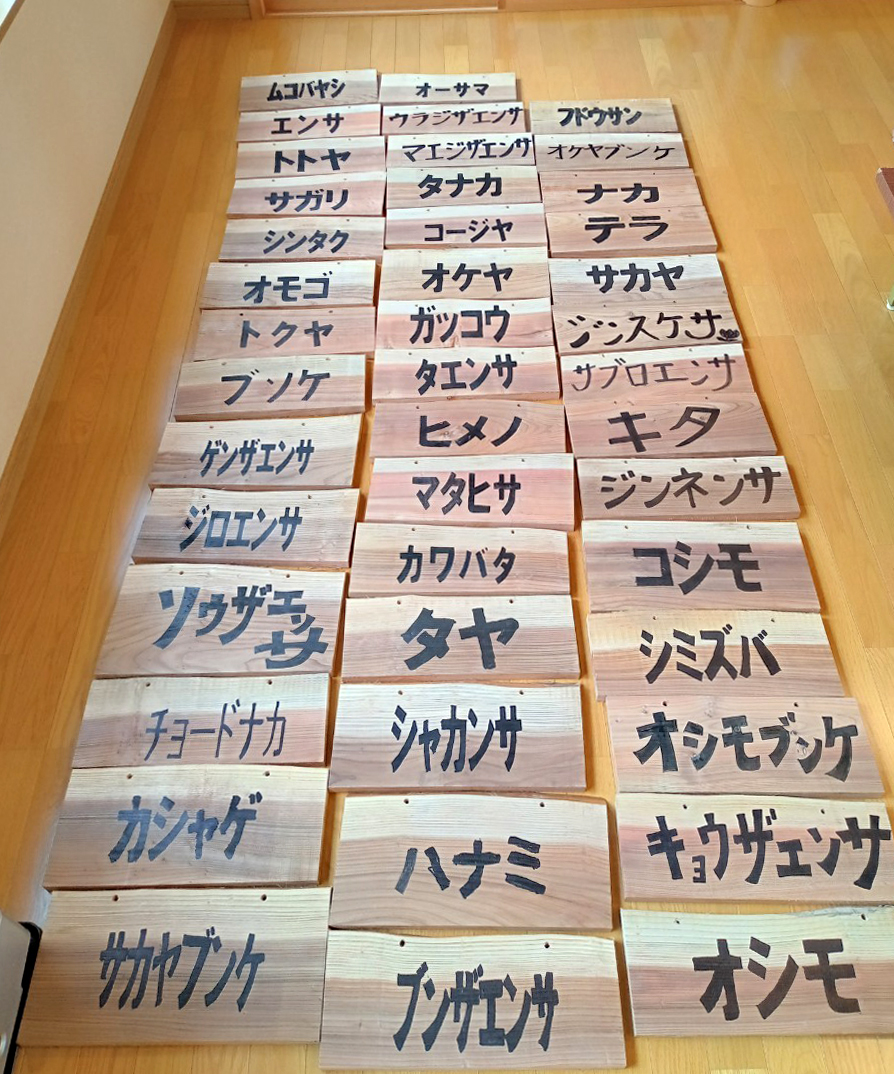 ムコバヤシ
エンサ
トトヤ
サガリ
シンタク
オモゴ
トクヤ
ブソケ
ゲンザエンサ
ジロエンサ
ソゥザエンサ
チョードナカ
カシャゲ
サカヤブンケ
オーサマ
ウラジザエンサ
マエジザエンサ
タナカ
コージヤ
オケヤ
ガッコウ
タエンサ
ヒメノ
マタヒサ
カワバタ
タヤ
シャカンサ
ハナミ
ブンザエンサ
フドウサン
オケヤブンケ
ナカ
テラ
サカヤ
ジンスケサ
サブロエンサ
キタ
ジンネンサ
コシモ
シミズバ
オシモブンケ
キョウザエンサ
オシモ